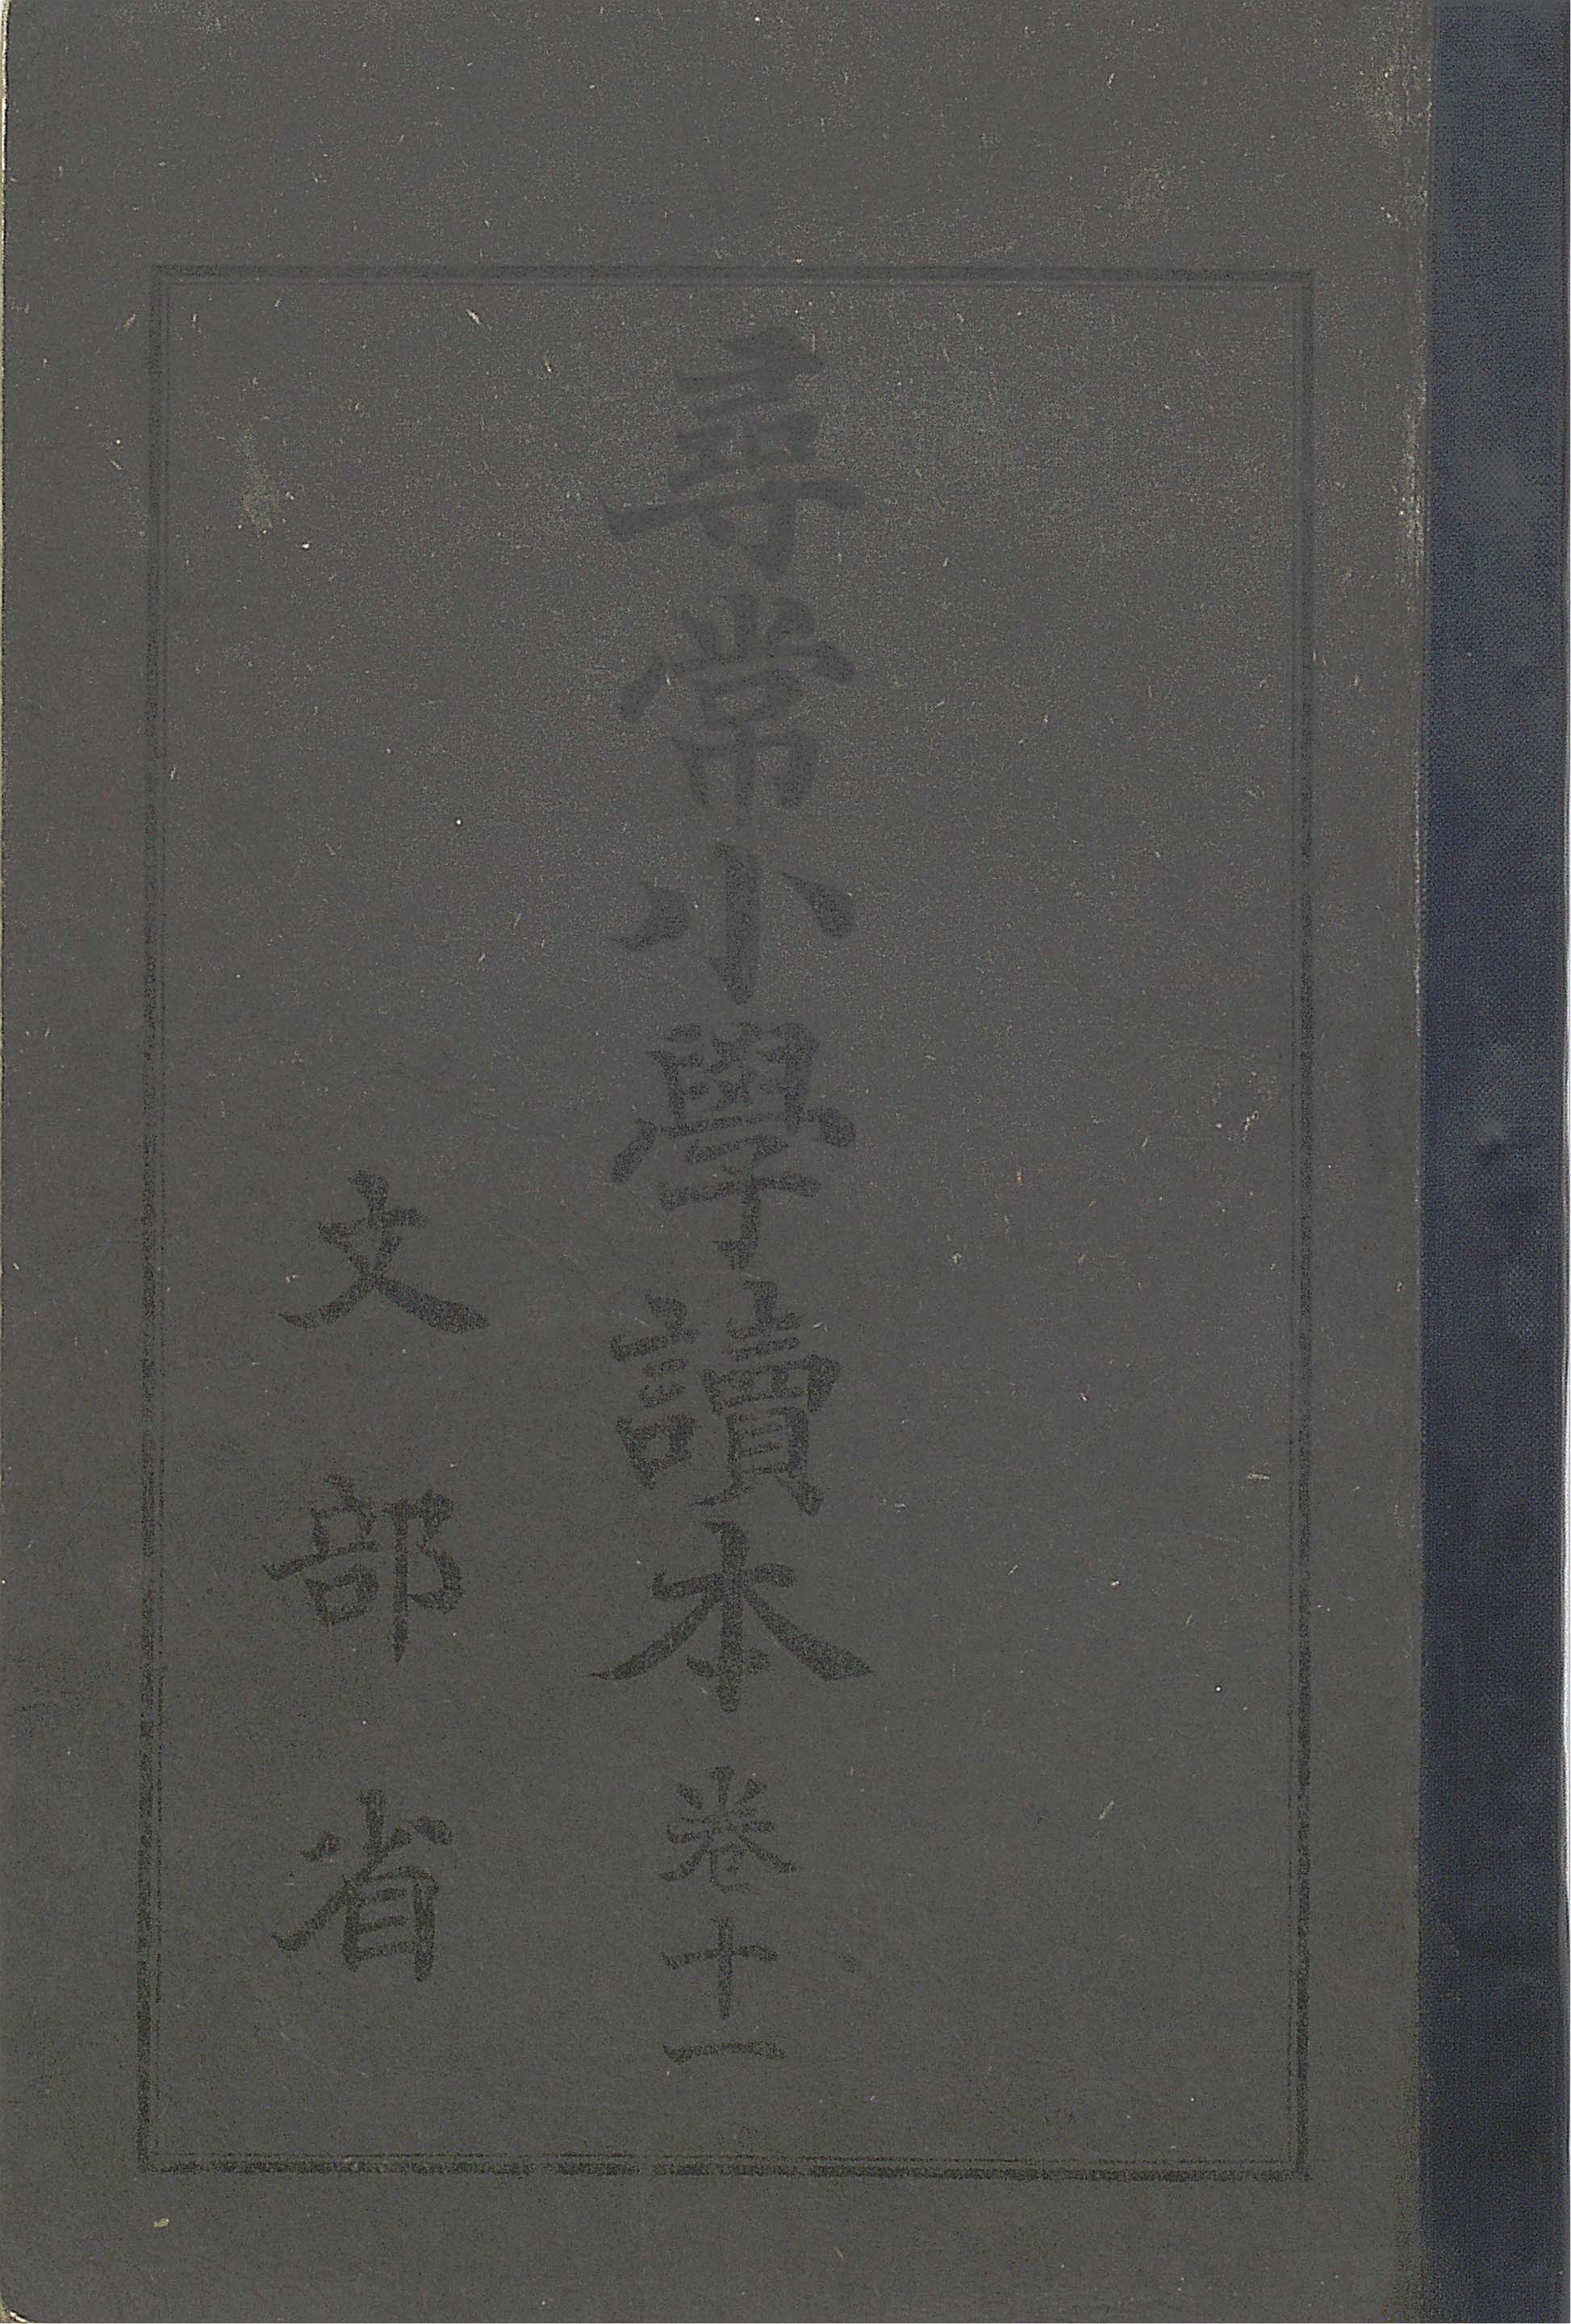 尋常小學讀本 卷十一
文部省